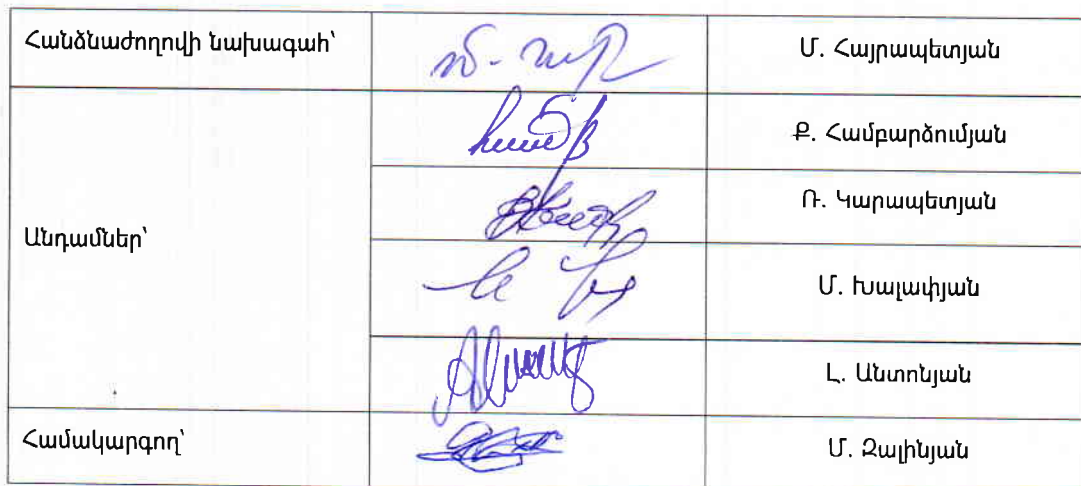 Հանձնաժողովի նախագահ՝
Մ. Հայրապետյան
Ք. Համբարձումյան
Ռ. Կարապետյան
Անդամներ՝
Մ. Խալափյան
Լ. Անտոնյան
Համակարգող՝
Մ. Զալինյան